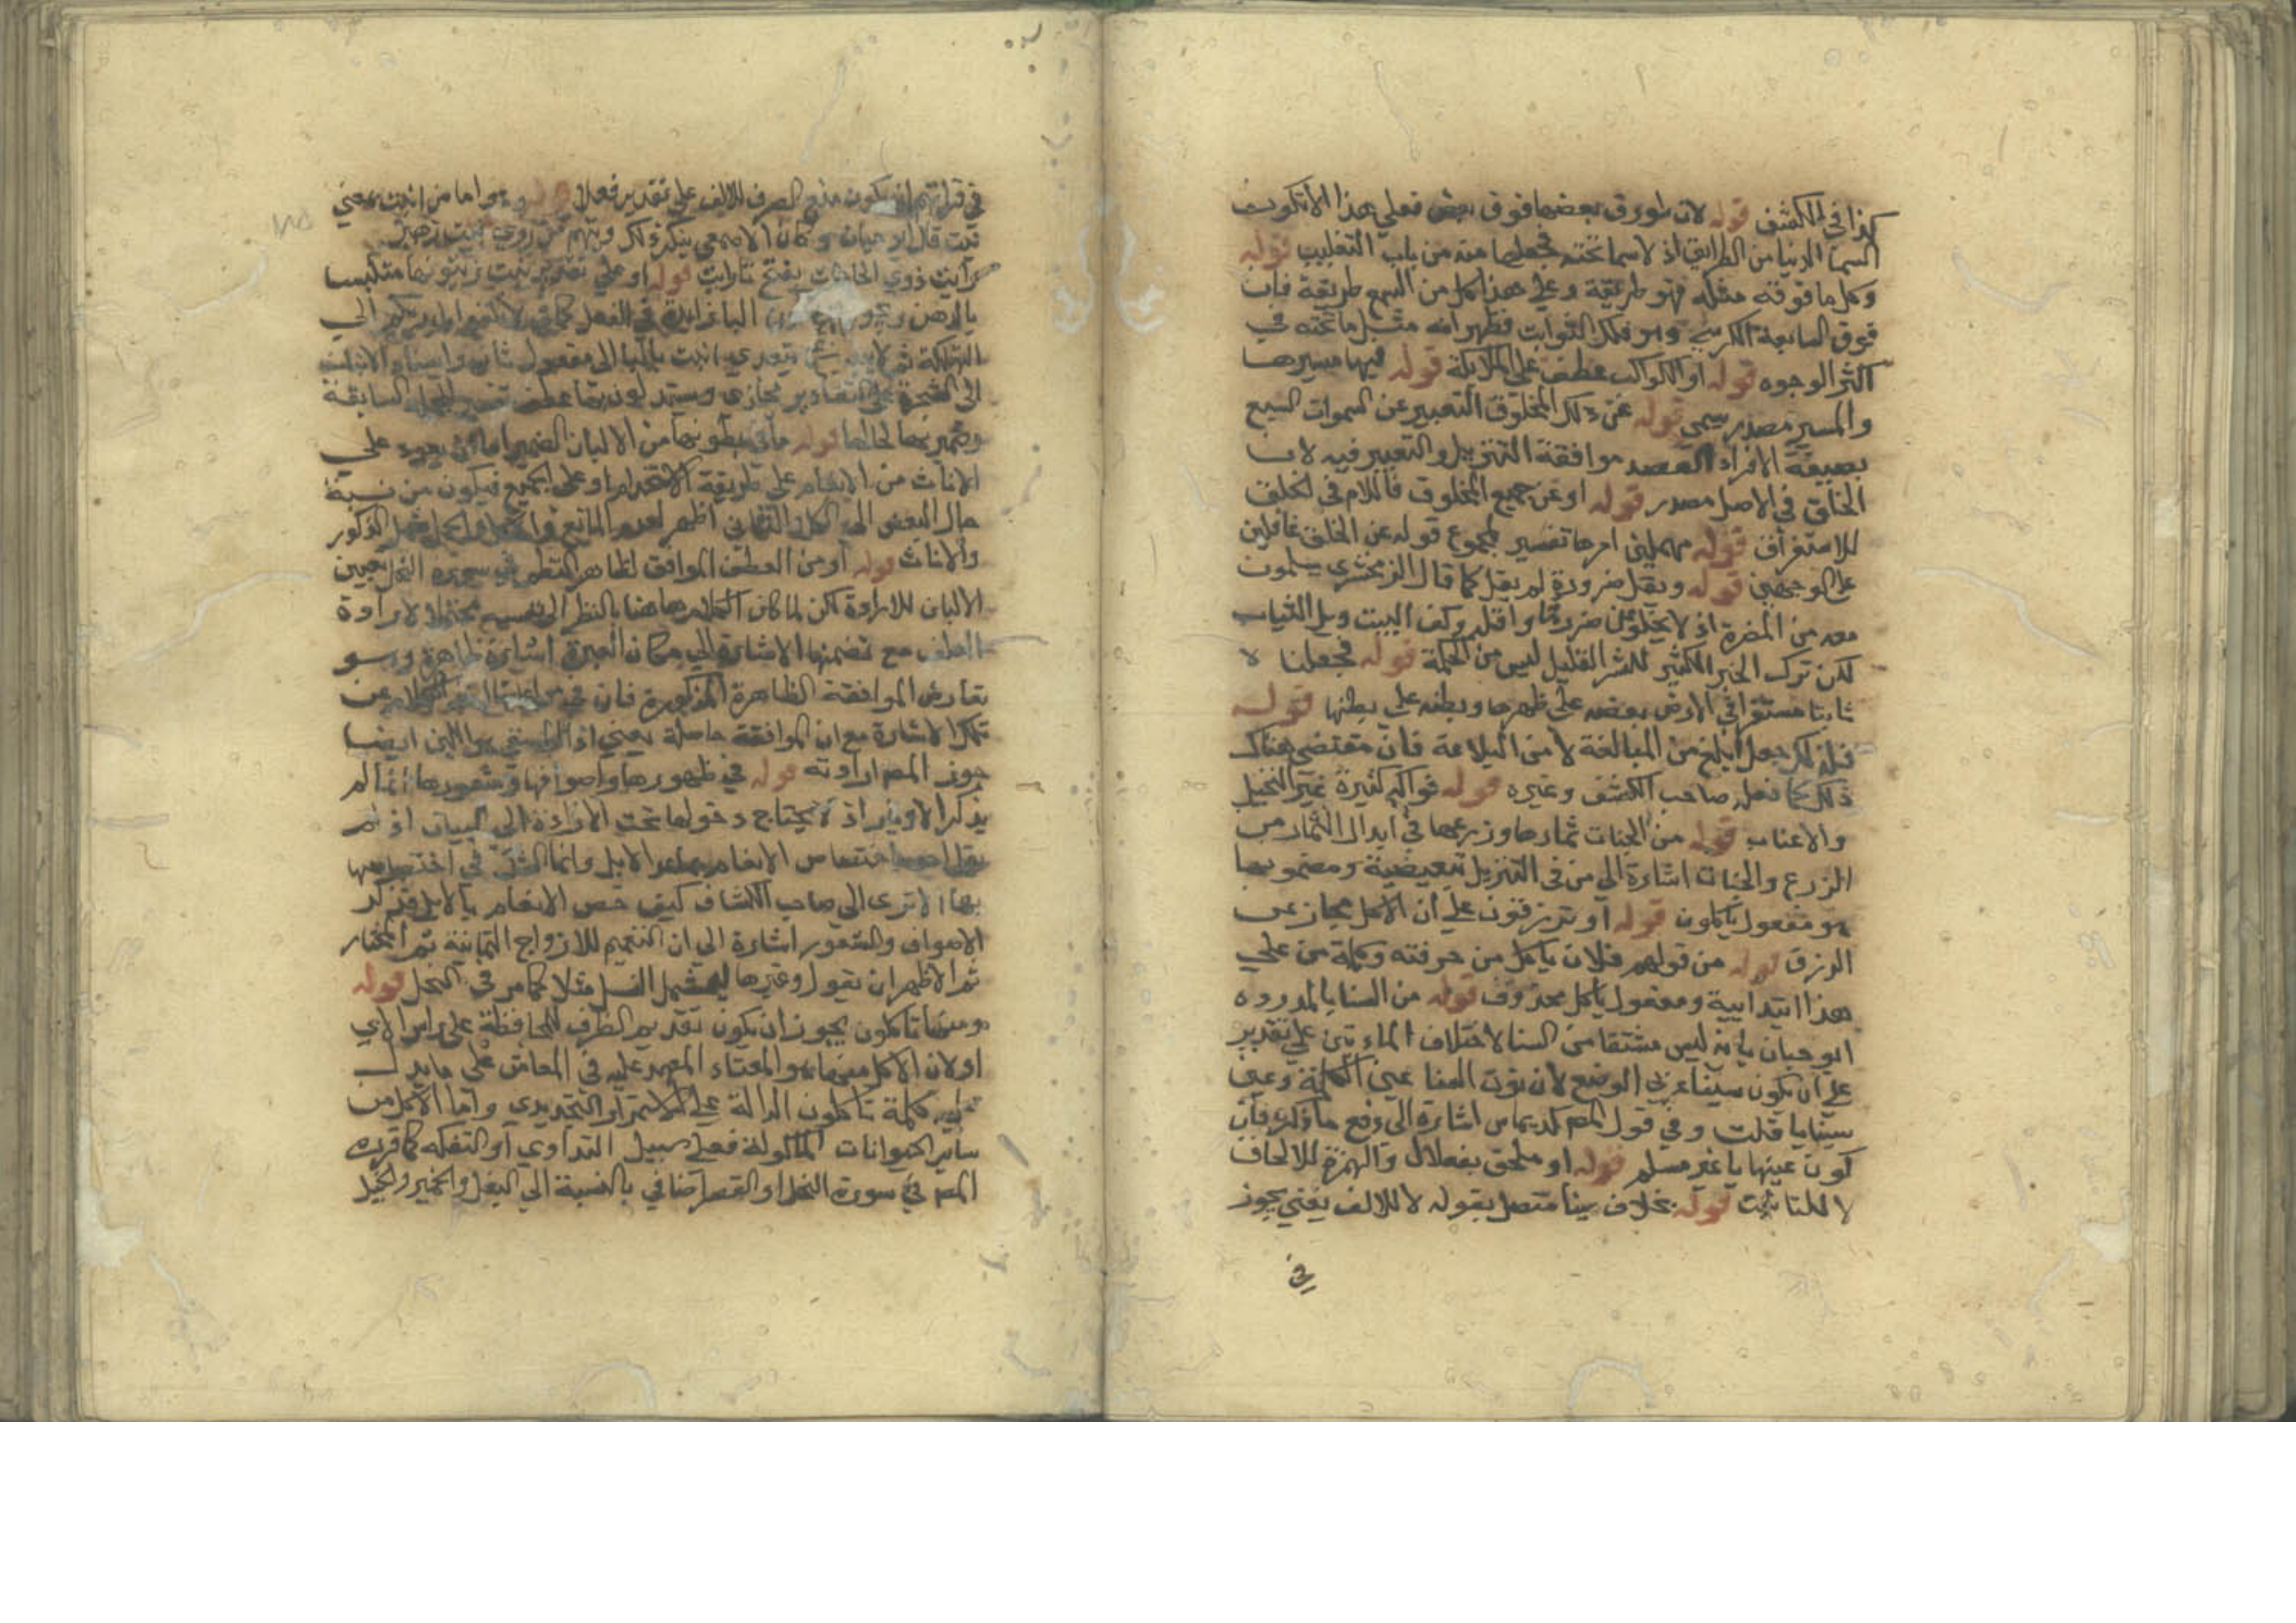 كذا في الكشف قوله لانه طورق بعضها فوق بعض فعلى هذا لا تكون
السما الدنيا من الطرايق اذ لا سما تحته فجعلها منه من باب التغليب قوله
وكل ما فوقه مثله فهو طريقة وعلى هذا كل من السبع طريقة فان
فوق السابعة الكرسي وهو فلك الثوابت فظهر انه مثل ما تحته في
اكثر الوجوه قوله او الكواكب عطف على الملايكة قوله فيها مسيرها
والمسير مصدر ميمي قوله عن ذلك المخلوق التعبير عن السموات السبع
بصيغة الافراد لقصد موافقة التنزيل والتعبير فيه لان
الخلق في الاصل مصدر قوله او عن جميع المخلوق فاللام في الخلق
للاستغراق قوله مهملين امرها تفسير لمجموع قوله عن الخلق غافلين
على الوجهين قوله وبقل ضرورة لم يقل كما قال الزمخشري يسلمون
معه من المضرة اذ لا يخلو عن ضرر ما واقله وكف البيت وبل الثياب
لكن ترك الخير الكثير للشر القليل ليس من الحكمة قوله فجعلنا لا
ثابتا مستقرا في الارض بعضه على ظهرها وبعضه على بطنها قوله
فلذلك جعل ابلغ من المبالغة لا من البلاغة فان مقتضى هناك
ذلك كما فعل صاحب الكشف وغيره قوله فواكه كثيرة غير النخيل
والاعناب قوله من الجنات ثمارها وزرعها في ابدال الثمار من
الزرع والجنات اشارة الى من في التنزيل تبعيضية ومضمونها
هو مفعول ياكلون قوله او ترزقون على ان الاكل مجاز عن
الرزق قوله من قولهم فلان ياكل من حرفته وكلمة من على
هذا ابتدايية ومفعول ياكل محذوف قوله من السنا بالمد رده
ابو حيان بانه ليس مشتقا من السنا لاختلاف المادتين على تقدير
على ان يكون سينا عربي الوضع لان نون السنا عين الكلمة وعين
سينا يا قلت وفي قول المص كديماس اشارة الى دفع ما ذكره فان
كون عينها يا غير مسلم قوله او ملحق بفعلال والهمزة للالحاق
لا للتانيث قوله بخلاف سينا متصل بقوله لا للالف يعني يجوز
في
في قراتهم ان يكون منع الصرف للالف على تقدير فعلا قوله وهو اما من انبت بمعني
نبت قال ابو حيان وكان الاصمعي ينكر ذلك ويتهم من روي بيت زهير
رايت ذوي الحاجات بفتح تا رايت قوله او على تقدير تنبت زيتونها متلبسا
بالدهن ويجوز ان يكون البا زايدة في الفعل كما في ولا تلقوا بايديكم الى
التهلكة ثم لا يتعدى انبت بالبا الى مفعول ثان واسناد الانبات
الى الشجرة على التقادير مجازي
وضمير بها لحالها قوله ما في بطونها من الالبان الضمير اما ان يعود على
الاناث من الانعام على طريقة الاستخدام او على الجميع فيكون من نسبة
حال البعض الى الكل والثاني اظهر لعدم المانع الذكور
والاناث قوله او من العلف الموافق لظاهر النظم في سورة النحل تعيين
الالبان للارادة لكن لما كان الكلام هاهنا بالنظر الى نفسه محتملا لارادة
العلف مع تضمنها الاشارة الى مكان العبرة اشارة ظاهرة وهو
تعارض الموافقة الظاهرة المذكورة فان في
تلك الاشارة مع ان الموافقة حاصلة يعني ايضا
جوز المص ارادته قوله في ظهورها واصوافها وشعورها انما لم
يذكر الاوبار اذ لا يحتاج دخولها تحت الارادة الى البيان اذ لم
يقل احد باختصاص الانعام بما عدا الابل وانما الشك في اختصاصها
بها الا ترى الى صاحب الكشاف كيف خص الانعام بالابل فذكر
الاصواف والشعور اشارة الى ان التعميم للازواج الثمانية ثم المختار
ثم الاظهر ان يقول وغيرها ليشمل النسل مثلا كما مر في النحل قوله
ومنها تاكلون يجوز ان يكون تقديم الظرف للمحافظة على راس الاي
او لان الاكل منها هو المعتاد المعهد عليه في المعاش على ما يدل
عليه كلمة تاكلون الدالة على الاستمرار التجددي واما الاكل من
ساير الحيوانات الماكولة فعلى سبيل التداوي او التفكه كما قرره
المص في سورة النحل او القصر اضافي بالنسبة الى البغل والحمير والخيل